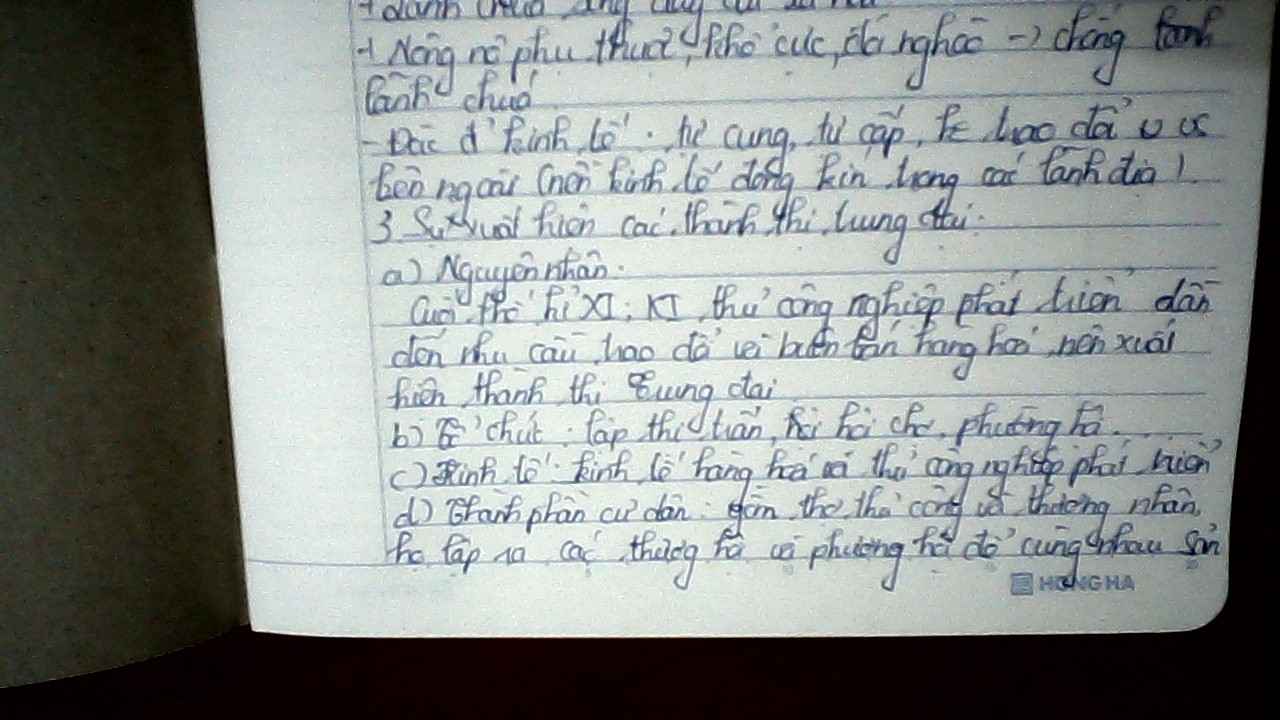 + Lãnh chúa
+ Nông nô phụ thuộc, khổ cực, đói nghèo -> chống lãnh
lãnh chúa
- Đặc đ' kinh tế: tự cung, tự cấp, ít trao đổi với
bên ngoài (nền kinh tế đóng kín trong các lãnh địa)
3. Sự xuất hiện các thành thị trung đại:
a) Nguyên nhân:
Cuối thế kỉ XI, thủ công nghiệp phát triển dẫn
đến nhu cầu trao đổi với buôn bán hàng hoá nên xuất
hiện thành thị trung đại
b) Tổ chức: lập thị trấn, hội chợ, phường hội.
c) Kinh tế: kinh tế hàng hoá và thủ công nghiệp phát triển
d) Thành phần cư dân: gồm thợ thủ công và thương nhân,
họ lập ra các thương hội và phường hội để cùng nhau sản
HONG HA